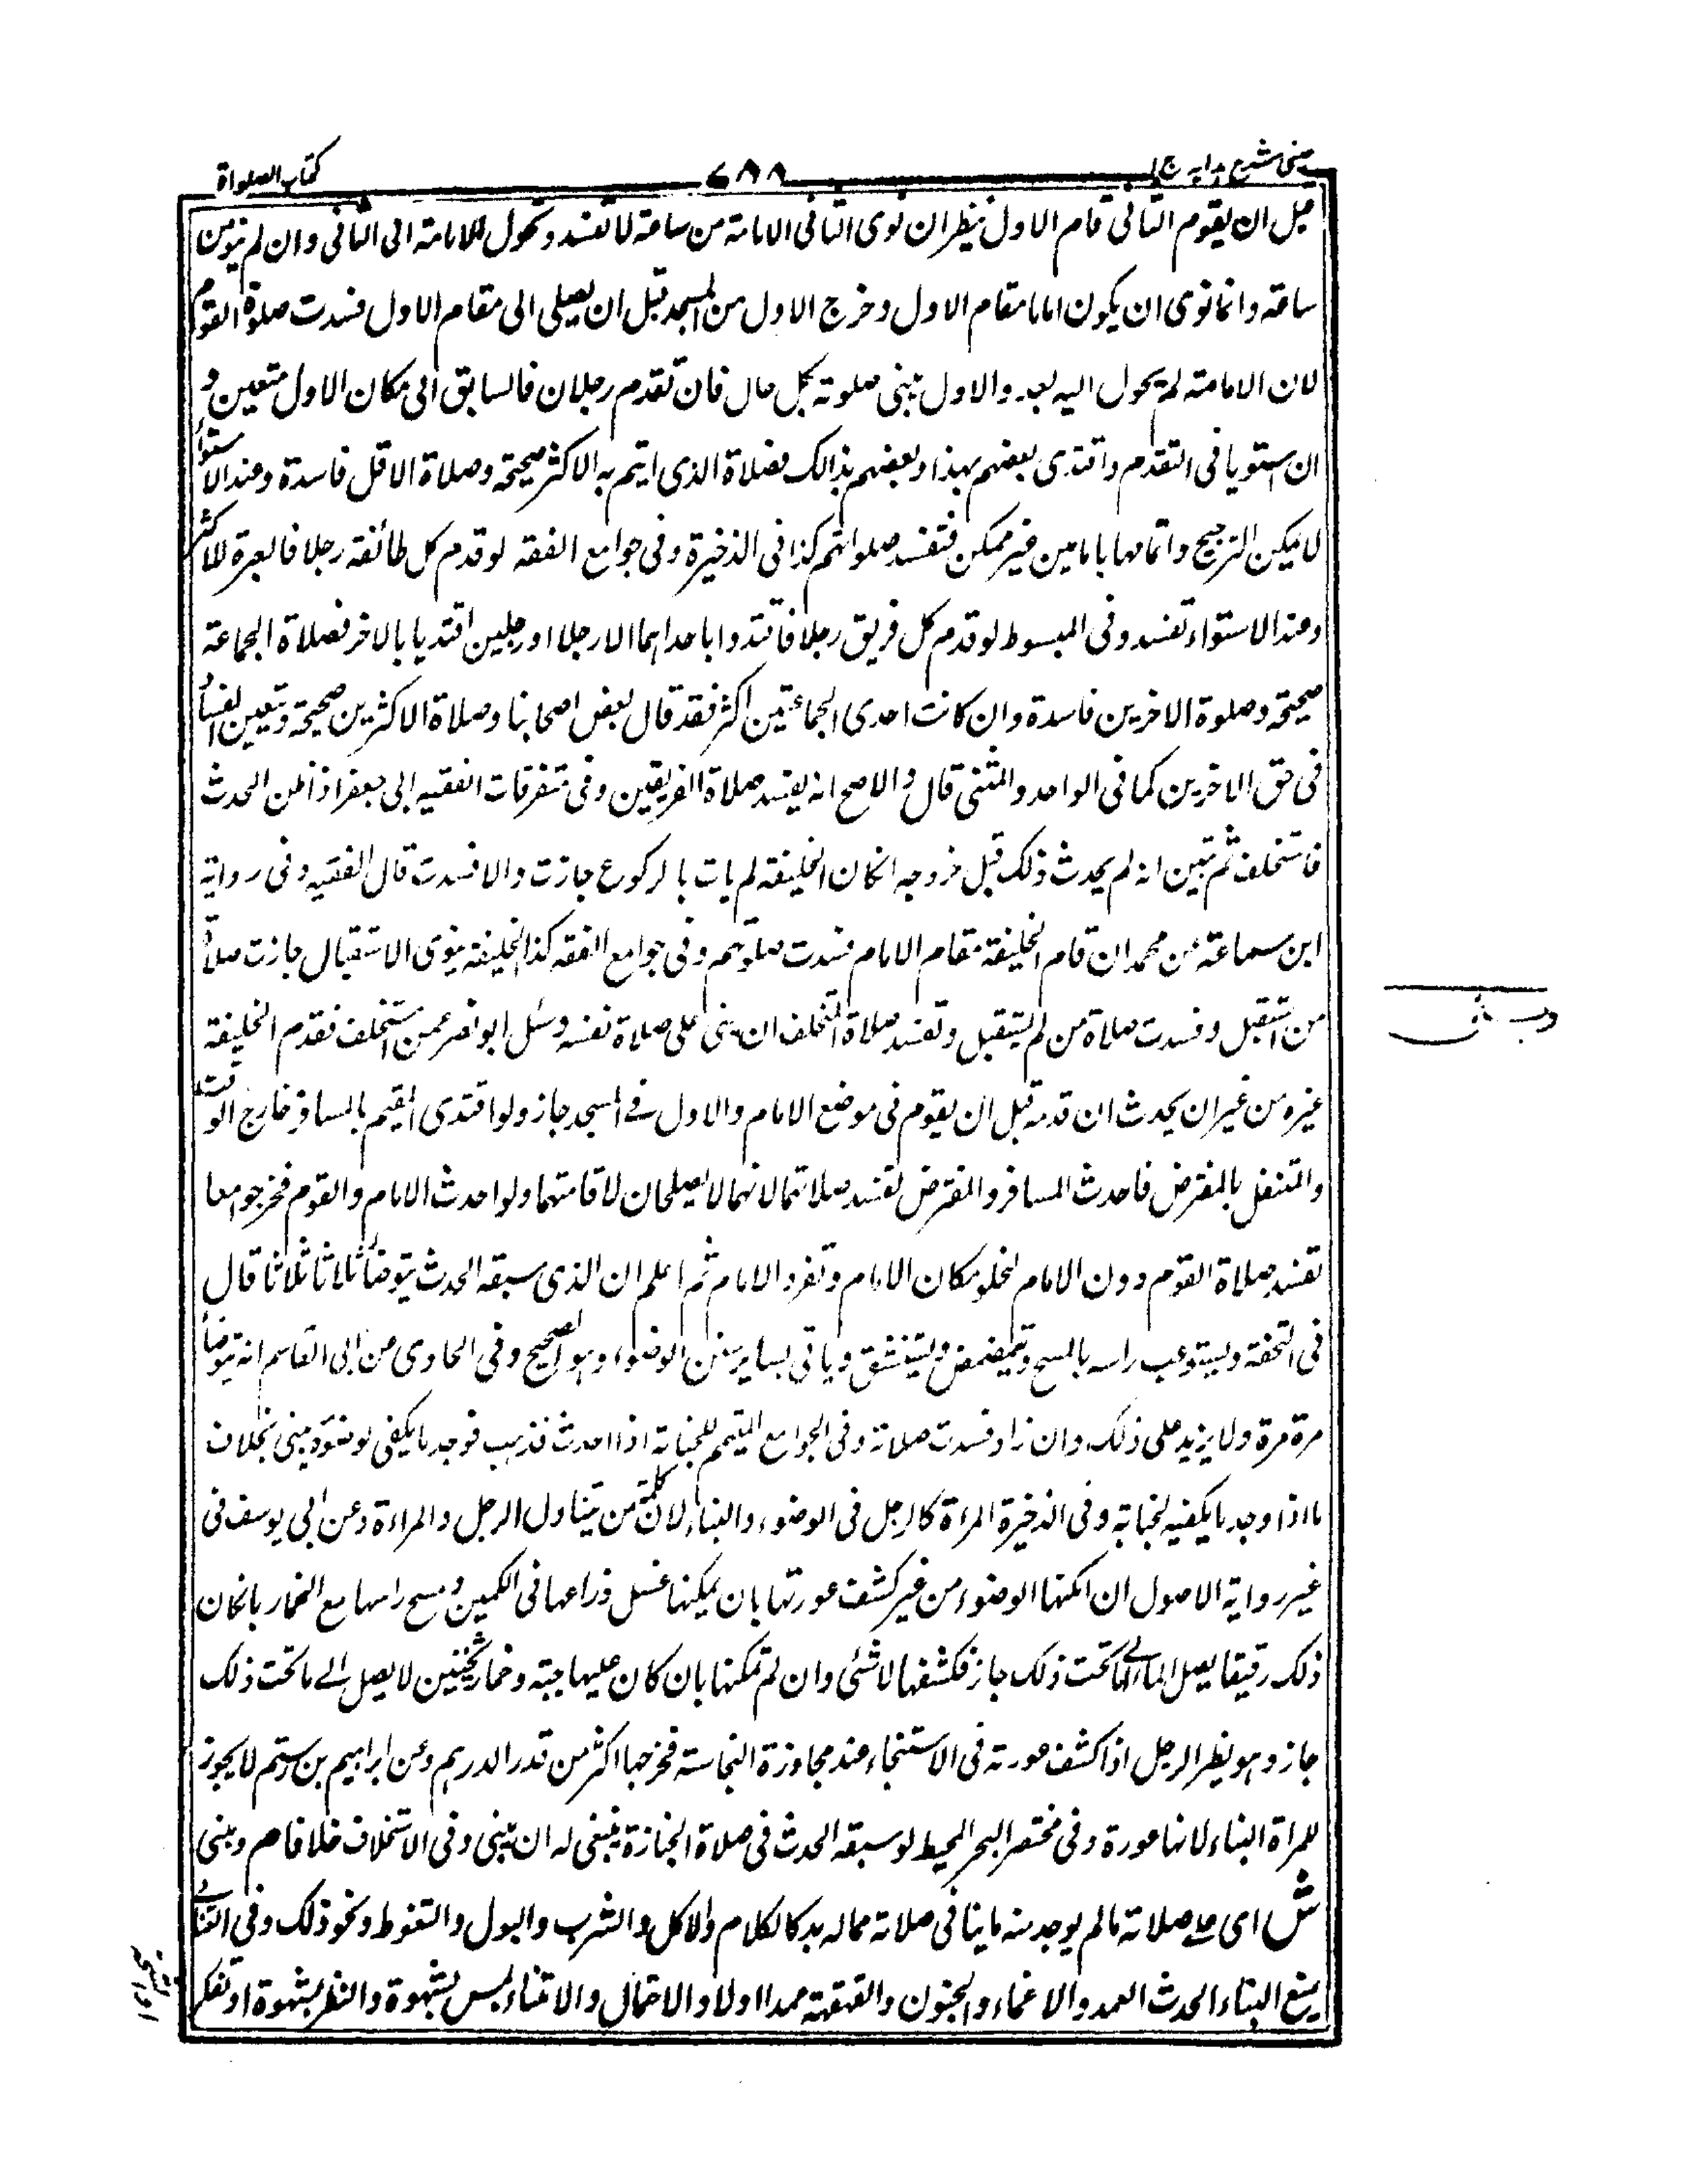 عینی شرح ہدایہ ج ۱
۷۸۸
کتاب الصلواة
قبل ان یقوم الثانی قام الاول ینظر ان نوی الثانی الامامة من ساعته لا تفسد وتحول الامامة الی الثانی وان لم ینو من
ساعته وانما نوی ان یکون اماما مقام الاول وخرج الاول من المسجد قبل ان یصلی الی مقام الاول فسدت صلوة القوم
لان الامامة لم یحول الیه بعد والاول یبنی صلوته بکل حال فان تقدم رجلان فالسابق الی مکان الاول متعین و
ان استویا فی التقدم واقتدی بعضهم بهذا وبعضهم بذالک فصلاة الذی ایتم به الاکثر صحیحة وصلاة الاقل فاسدة وعند الاستواء
لا یمکن الترجیح واتمامها بامامین غیر ممکن فتفسد صلواتهم کذا فی الذخیرة وفی جوامع الفقه لو قدم کل طائفة رجلا فالعبرة للاکثر
وعند الاستواء تفسد وفی المبسوط لو قدم کل فریق رجلا فاقتدوا باحدهما الا رجلا او رجلین اقتدیا بالاخر فصلاة الجماعة
صحیحة وصلوة الاخرین فاسدة وان کانت احدی الجماعتین اکثر فقد قال بعض اصحابنا وصلاة الاکثرین صحیحة ویتعین الفساد
فی حق الاخرین کما فی الواحد والمثنی قال والاصح انه یفسد صلاة الفریقین وفی متفرقات الفقیه ابی جعفر اذا ظن الحدث
فاستخلف ثم تبین انه لم یحدث ذلک قبل خروجه انکان الخلیفة لم یات بالرکوع جازت والا فسدت قال الفقیه وفی روایة
ابن سماعة عن محمد ان قام الخلیفة مقام الامام فسدت صلوتهم وفی جوامع الفقه کذا الخلیفة ینوی الاستقبال جازت صلاة
من استقبل وفسدت صلاة من لم یستقبل وتفسد صلاة المتخلف ان بنی علی صلاة نفسه وسئل ابو نصر عمن استخلف فقدم الخلیفة
غیره من غیر ان یحدث ان قدمه قبل ان یقوم فی موضع الامام والاول فے المسجد جاز ولو اقتدی المقیم بالمسافر خارج الوقت
والمتنفل بالمفترض فاحدث المسافر والمفترض تفسد صلاتهما لانهما لا یصلحان لاقامتهما ولو احدث الامام والقوم فخرجوا معا
تفسد صلاة القوم دون الامام لخلو مکان الامام وتفرد الامام ثم اعلم ان الذی سبقه الحدث یتوضأ ثلاثا ثلاثا قال
فی التحفة ویستوعب راسه بالمسح ویتمضمض ویستنشق ویاتی بسایر سنن الوضوء وهو الصحیح وفی الحاوی عن ابی القاسم انه یتوضأ
مرة مرة ولا یزید علی ذلک وان زاد فسدت صلاته وفی الجوامع المتیمم للجنابة اذا احدث فذهب فوجد ما یکفی لوضوءه یبنی بخلاف
ما اذا وجد ما یکفیه لجنابة وفی الذخیرة المراة کالرجل فی الوضوء والبناء لان کلمة من یتناول الرجل والمراءة وعن ابی یوسف فی
غیر روایة الاصول ان امکنها الوضوء من غیر کشف عورتها بان یمکنها غسل ذراعها فی الکمین ومسح راسها مع الخمار بانکان
ذلک رقیقا یصل الماء الی ما تحت ذلک جاز فکشفها لا شئی وان لم تمکنها بان کان علیها جبة وخمار ثخینین لا یصل الے ما تحت ذلک
جاز وهو نظیر الرجل اذا کشف عورته فی الاستنجاء عند مجاوزة النجاسة فخرجها اکثر من قدر الدرهم وعن ابراهیم بن رستم لا یجوز
للمراة البناء لانها عورة وفی مختصر البحر المحیط لو سبقه الحدث فی صلاة الجنازة ینبغی له ان یبنی وفی الاستخلاف خلافا ص ویبنی
ش ای علے صلاته ما لم یوجد منه ما ینافی صلاته مما له بد کالکلام والاکل والشرب والبول والتغوط ونحو ذلک وفی القنیة
یمنع البناء الحدث العمد والاغماء والجنون والقهقهة عمدا اولا والاحتلال والاعتناء لمس بشهوة والنظر بشهوة او تفکر